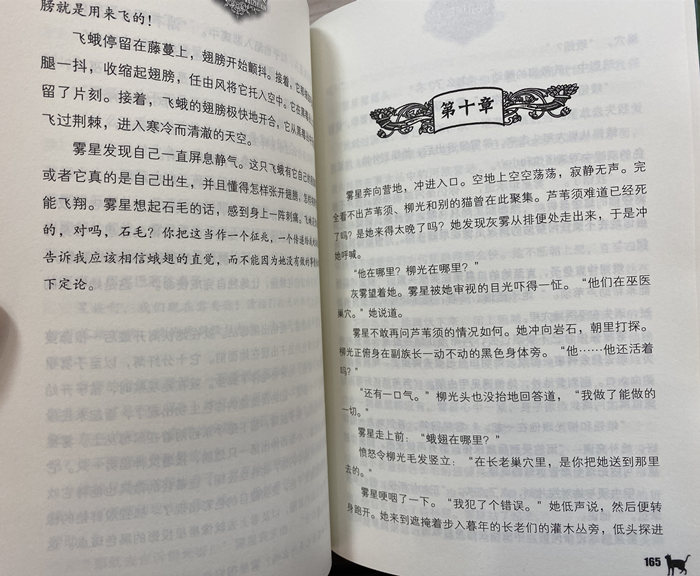 膀就是用来飞的！
飞蛾停留在藤蔓上，翅膀开始颤抖。接着，它
腿一抖，收缩起翅膀，任由风将它托入空中。它在
留了片刻。接着，飞蛾的翅膀极快地开合，它从
飞过荆棘，进入寒冷而清澈的天空。
雾星发现自己一直屏息静气。这只飞蛾有它自己
或者它真的是自己出生，并且懂得怎样张开翅膀，怎样
能飞翔。雾星想起石毛的话，感到身上一阵刺痛。
的，对吗，石毛？你把这当作一个征兆，一个
告诉我应该相信蛾翅的直觉，而不能因为她没有
下定论。
第十章
雾星奔向营地，冲进入口。空地上空空荡荡，寂静无声。完
全看不出芦苇须、柳光和别的猫曾在此聚集。芦苇须难道已经死
了吗？是她来得太晚了吗？她发现灰雾从排便处走出来，于是冲
她呼喊。
“他在哪里？柳光在哪里？”
灰雾望着她。雾星被她审视的目光吓得一怔。“他们在巫医
巢穴。”她说道。
雾星不敢再问芦苇须的情况如何。她冲向岩石，朝里打探。
柳光正俯身在副族长一动不动的黑色身体旁。“他……他还活着
吗？”
“还有一口气。”柳光头也没抬地回答道，“我做了能做的
一切。”
雾星走上前：“蛾翅在哪里？”
愤怒令柳光毛发竖立：“在长老巢穴里，是你把她送到那里
去的。”
雾星哽咽了一下。“我犯了个错误。”她低声说，然后便转
身跑开。她来到遮掩着步入暮年的长老们的灌木丛旁，低头探进
165